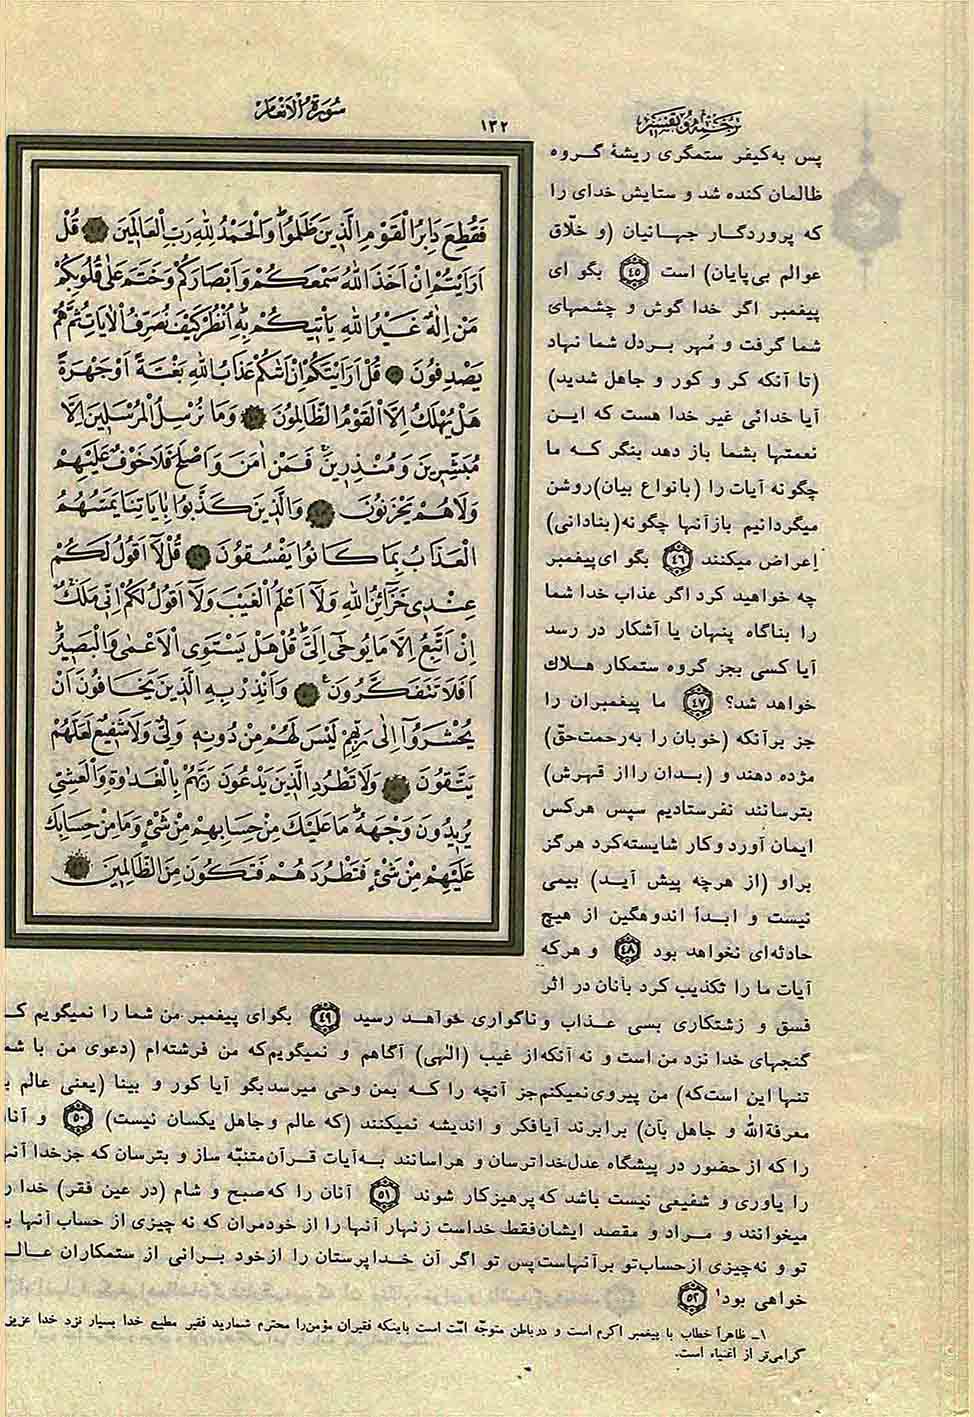 سُورَةُ الْاَنْعَامِ
۱۳۲
ترجمه و تفسیر
فَقُطِعَ دَابِرُ الْقَوْمِ الَّذِينَ ظَلَمُواْ وَالْحَمْدُ لِلّٰهِ رَبِّ الْعَالَمِينَ ﴿٤٥﴾ قُلْ
اَرَاَيْتُمْ اِنْ اَخَذَ اللّٰهُ سَمْعَكُمْ وَاَبْصَارَكُمْ وَخَتَمَ عَلٰى قُلُوبِكُمْ
مَنْ اِلٰهٌ غَيْرُ اللّٰهِ يَاْتِيكُمْ بِهِ اُنْظُرْ كَيْفَ نُصَرِّفُ الْاٰيَاتِ ثُمَّ هُمْ
يَصْدِفُونَ ﴿٤٦﴾ قُلْ اَرَاَيْتَكُمْ اِنْ اَتٰيكُمْ عَذَابُ اللّٰهِ بَغْتَةً اَوْ جَهْرَةً
هَلْ يُهْلَكُ اِلَّا الْقَوْمُ الظَّالِمُونَ ﴿٤٧﴾ وَمَا نُرْسِلُ الْمُرْسَلِينَ اِلَّا
مُبَشِّرِينَ وَمُنْذِرِينَ فَمَنْ اٰمَنَ وَاَصْلَحَ فَلَا خَوْفٌ عَلَيْهِمْ
وَلَا هُمْ يَحْزَنُونَ ﴿٤٨﴾ وَالَّذِينَ كَذَّبُوا بِاٰيَاتِنَا يَمَسُّهُمُ
الْعَذَابُ بِمَا كَانُوا يَفْسُقُونَ ﴿٤٩﴾ قُلْ لَا اَقُولُ لَكُمْ
عِنْدِي خَزَائِنُ اللّٰهِ وَلَا اَعْلَمُ الْغَيْبَ وَلَا اَقُولُ لَكُمْ اِنِّي مَلَكٌ
اِنْ اَتَّبِعُ اِلَّا مَا يُوحٰى اِلَيَّ قُلْ هَلْ يَسْتَوِي الْاَعْمٰى وَالْبَصِيرُ
اَفَلَا تَتَفَكَّرُونَ ﴿٥٠﴾ وَاَنْذِرْ بِهِ الَّذِينَ يَخَافُونَ اَنْ
يُحْشَرُوا اِلٰى رَبِّهِمْ لَيْسَ لَهُمْ مِنْ دُونِهِ وَلِيٌّ وَلَا شَفِيعٌ لَعَلَّهُمْ
يَتَّقُونَ ﴿٥١﴾ وَلَا تَطْرُدِ الَّذِينَ يَدْعُونَ رَبَّهُمْ بِالْغَدَاوةِ وَالْعَشِيِّ
يُرِيدُونَ وَجْهَهُ مَا عَلَيْكَ مِنْ حِسَابِهِمْ مِنْ شَيْءٍ وَمَا مِنْ حِسَابِكَ
عَلَيْهِمْ مِنْ شَيْءٍ فَتَطْرُدَهُمْ فَتَكُونَ مِنَ الظَّالِمِينَ ﴿٥٢﴾
پس به‌کیفر ستمگری ریشهٔ گروه
ظالمان کنده شد و ستایش خدای را
که پروردگار جهانیان (و خلّاق
عوالم بی‌پایان) است ﴿٤٥﴾ بگو ای
پیغمبر اگر خدا گوش و چشمهای
شما گرفت و مُهر بردل شما نهاد
(تا آنکه کر و کور و جاهل شدید)
آیا خدائی غیر خدا هست که این
نعمتها بشما باز دهد بنگر که ما
چگونه آیات را (بانواع بیان) روشن
میگردانیم بازآنها چگونه (بنادانی)
اِعراض میکنند ﴿٤٦﴾ بگو ای پیغمبر
چه خواهید کرد اگر عذاب خدا شما
را بناگاه پنهان یا آشکار در رسد
آیا کسی بجز گروه ستمکار هلاك
خواهد شد؟ ﴿٤٧﴾ ما پیغمبران را
جز برآنکه (خوبان را به‌رحمت حقّ)
مژده دهند و (بدان را از قهرش)
بترسانند نفرستادیم سپس هرکس
ایمان آورد وکار شایسته‌کرد هرگز
براو (از هرچه پیش آید) بیمی
نیست و ابداً اندوهگین از هیچ
حادثه‌ای نخواهد بود ﴿٤٨﴾ و هرکه
آیات ما را تکذیب کرد بآنان در اثر
فسق و زشتکاری بسی عذاب و ناگواری خواهد رسید ﴿٤٩﴾ بگوای پیغمبر من شما را نمیگویم کـ
گنجهای خدا نزد من است و نه آنکه از غیب (الٰهی) آگاهم و نمیگویم‌که من فرشته‌ام (دعوی من با شم
تنها این است‌که) من پیروی نمیکنم جز آنچه را که بمن وحی میرسد بگو آیا کور و بینا (یعنی عالم ب
معرفةالله و جاهل بآن) برابرند آیافکر و اندیشه نمیکنند (که عالم وجاهل یکسان نیست) ﴿٥٠﴾ و آنا
را که از حضور در پیشگاه عدل خدا ترسان و هراسانند به‌آیات قرآن متنبّه ساز و بترسان که جزخدا آنه
را یاوری و شفیعی نیست باشد که پرهیزکار شوند ﴿٥١﴾ آنان را که‌صبح و شام (در عین فقر) خدا ر
میخوانند و مراد و مقصد ایشان فقط خداست زنهار آنها را از خودمران که نه چیزی از حساب آنها ب
تو و نه‌چیزی ازحساب‌تو برآنهاست پس تو اگر آن خداپرستان را ازخود برانی از ستمکاران عالـ
خواهی بود۱ ﴿٥٢﴾
۱ـ ظاهراً خطاب با پیغمبر اکرم است و درباطن متوجّه امّت است باینکه فقیران مؤمن‌را محترم شمارید فقیر مطیع خدا بسیار نزد خدا عزیز
گرامی‌تر از اغنیاء است.